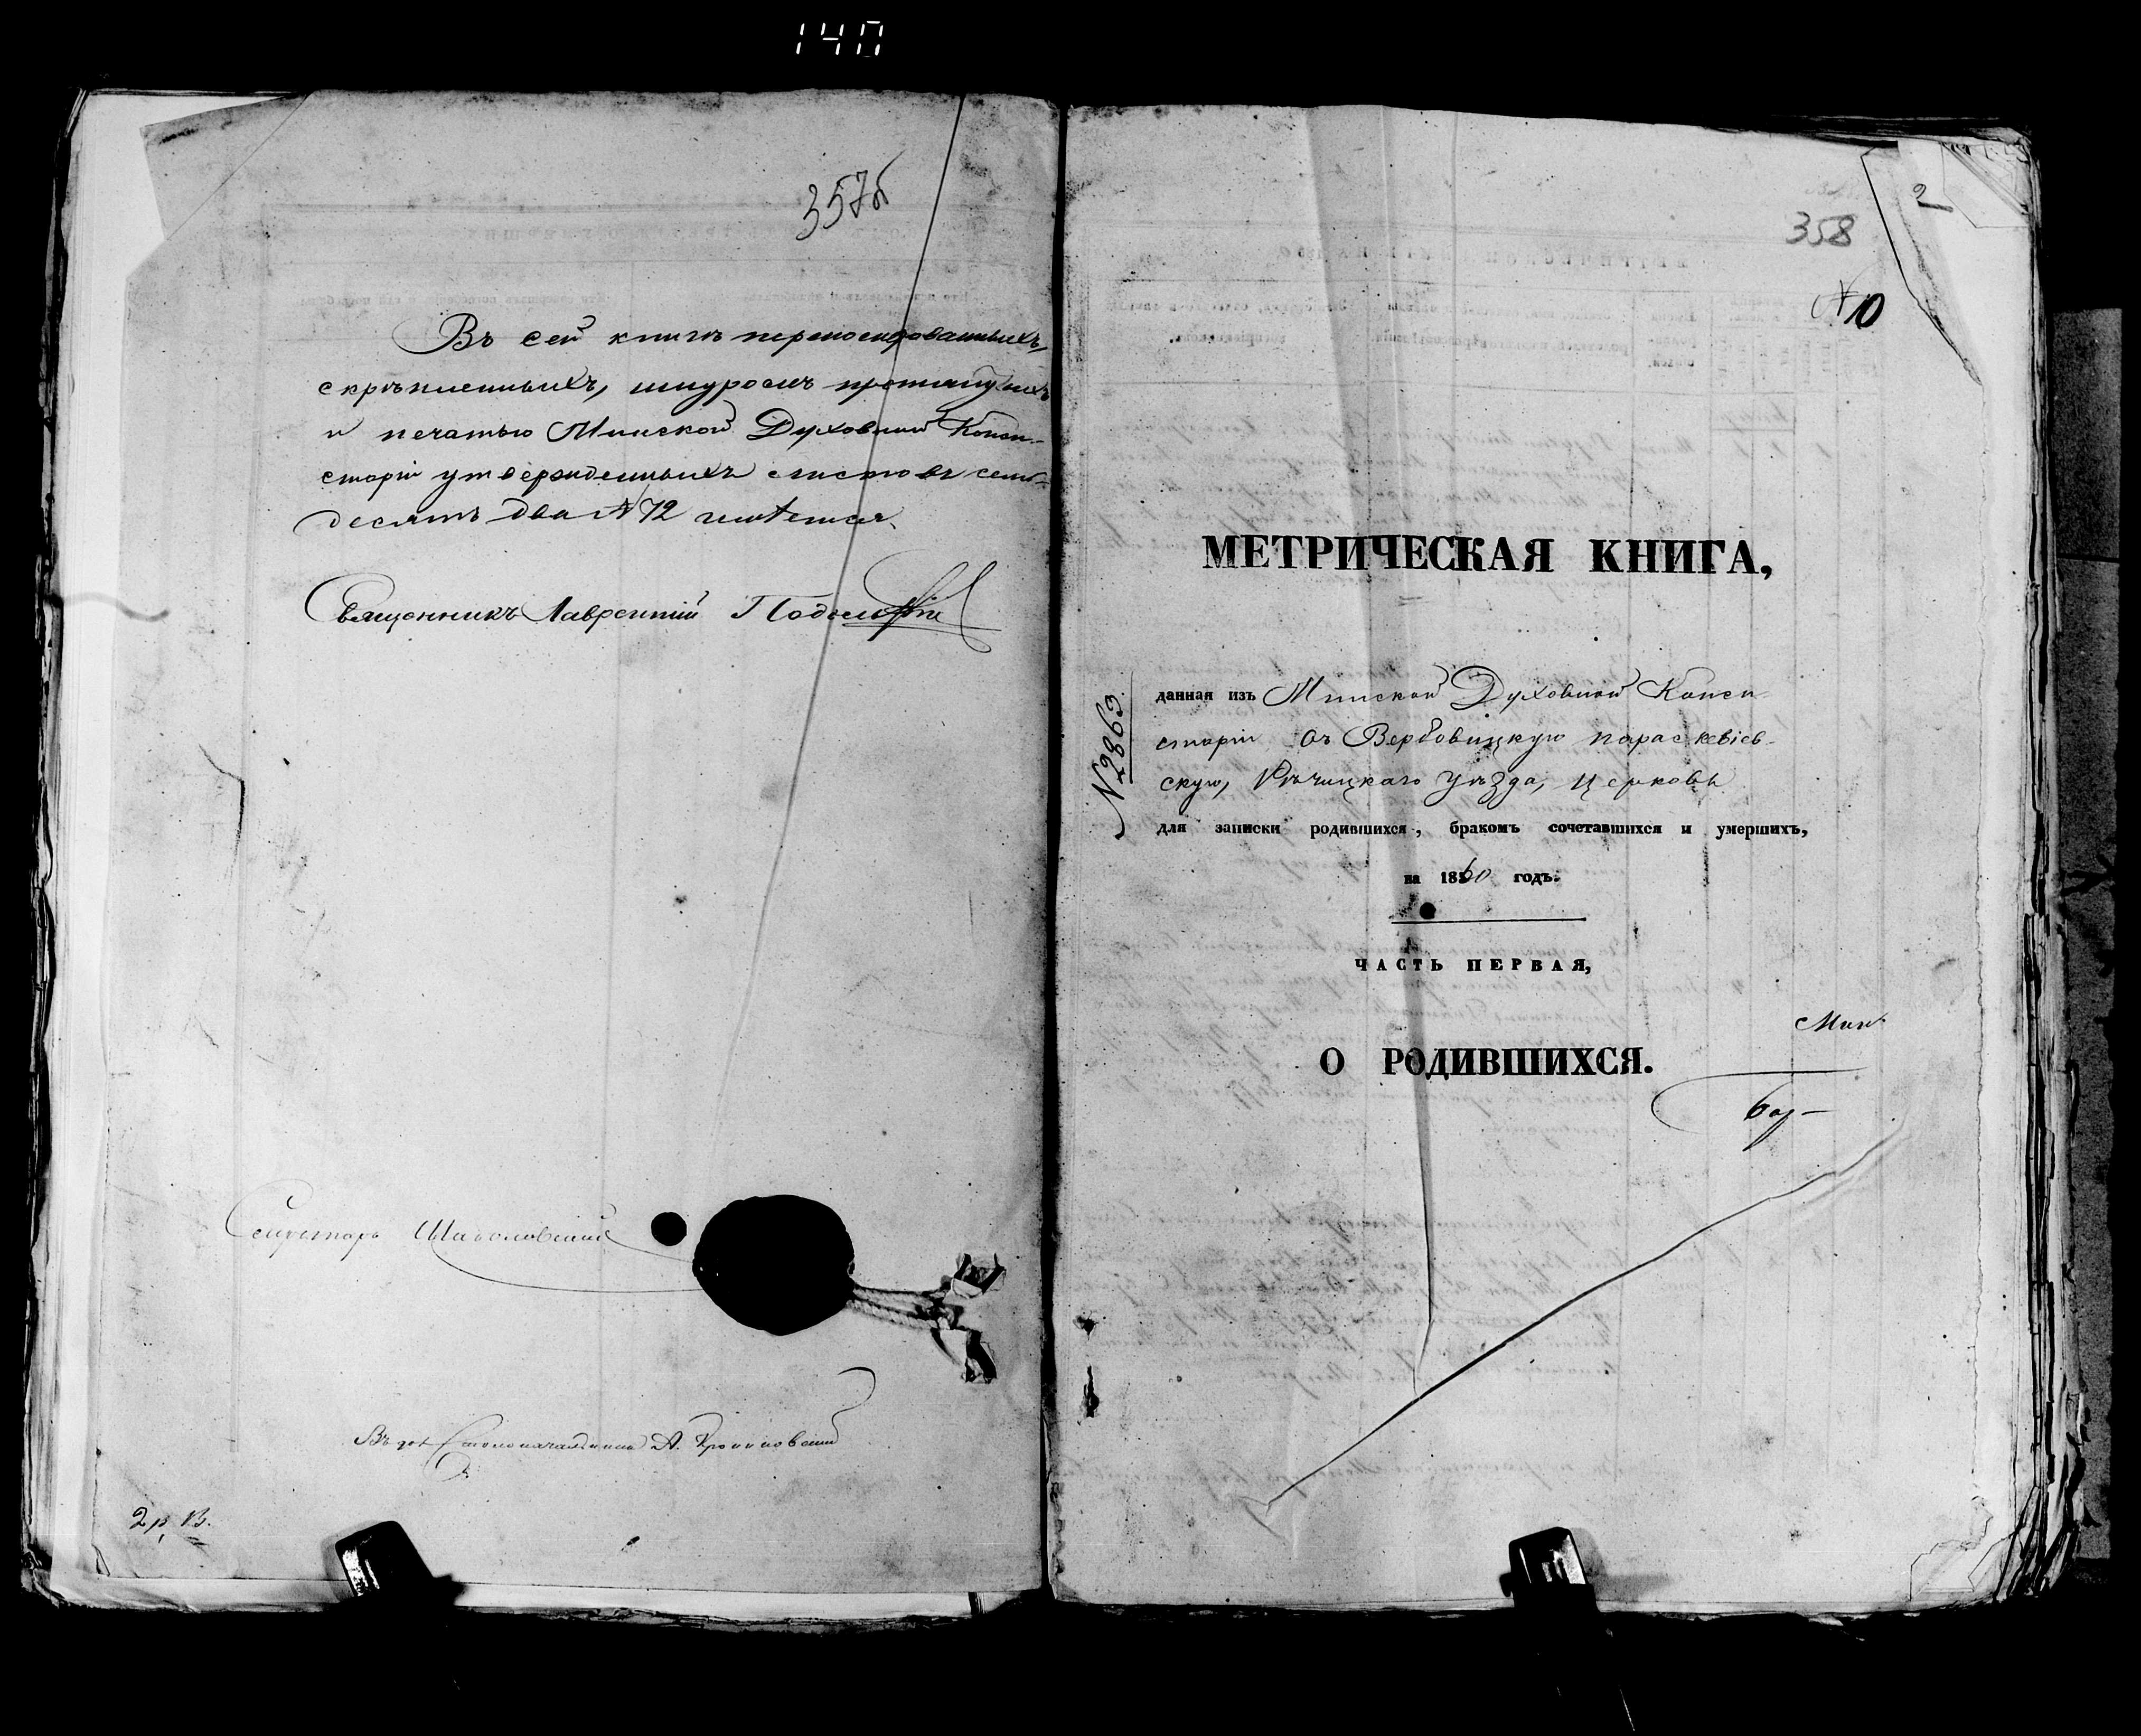 140
357б
Въ сей книгѣ перенумерованныхъ,
скрѣпленныхъ, шнуромъ протянутыхъ
и печатью Минской Духовной Конси-
сторіи утвержденныхъ листовъ семь-
десятъ два № 72 имѣется.
Священникъ Лаврентій
Секретарь
Столоначальника А.
2
358
№ 10
МЕТРИЧЕСКАЯ КНИГА,
№ 2863.
данная изъ Минской Духовной Конси-
сторіи въ Вербовицкую параскевіев-
скую, Рѣчицкаго уѣзда, церковь
для записки родившихся, бракомъ сочетавшихся и умершихъ,
на 1860 годъ.
ЧАСТЬ ПЕРВАЯ,
Мин
О РОДИВШИХСЯ.